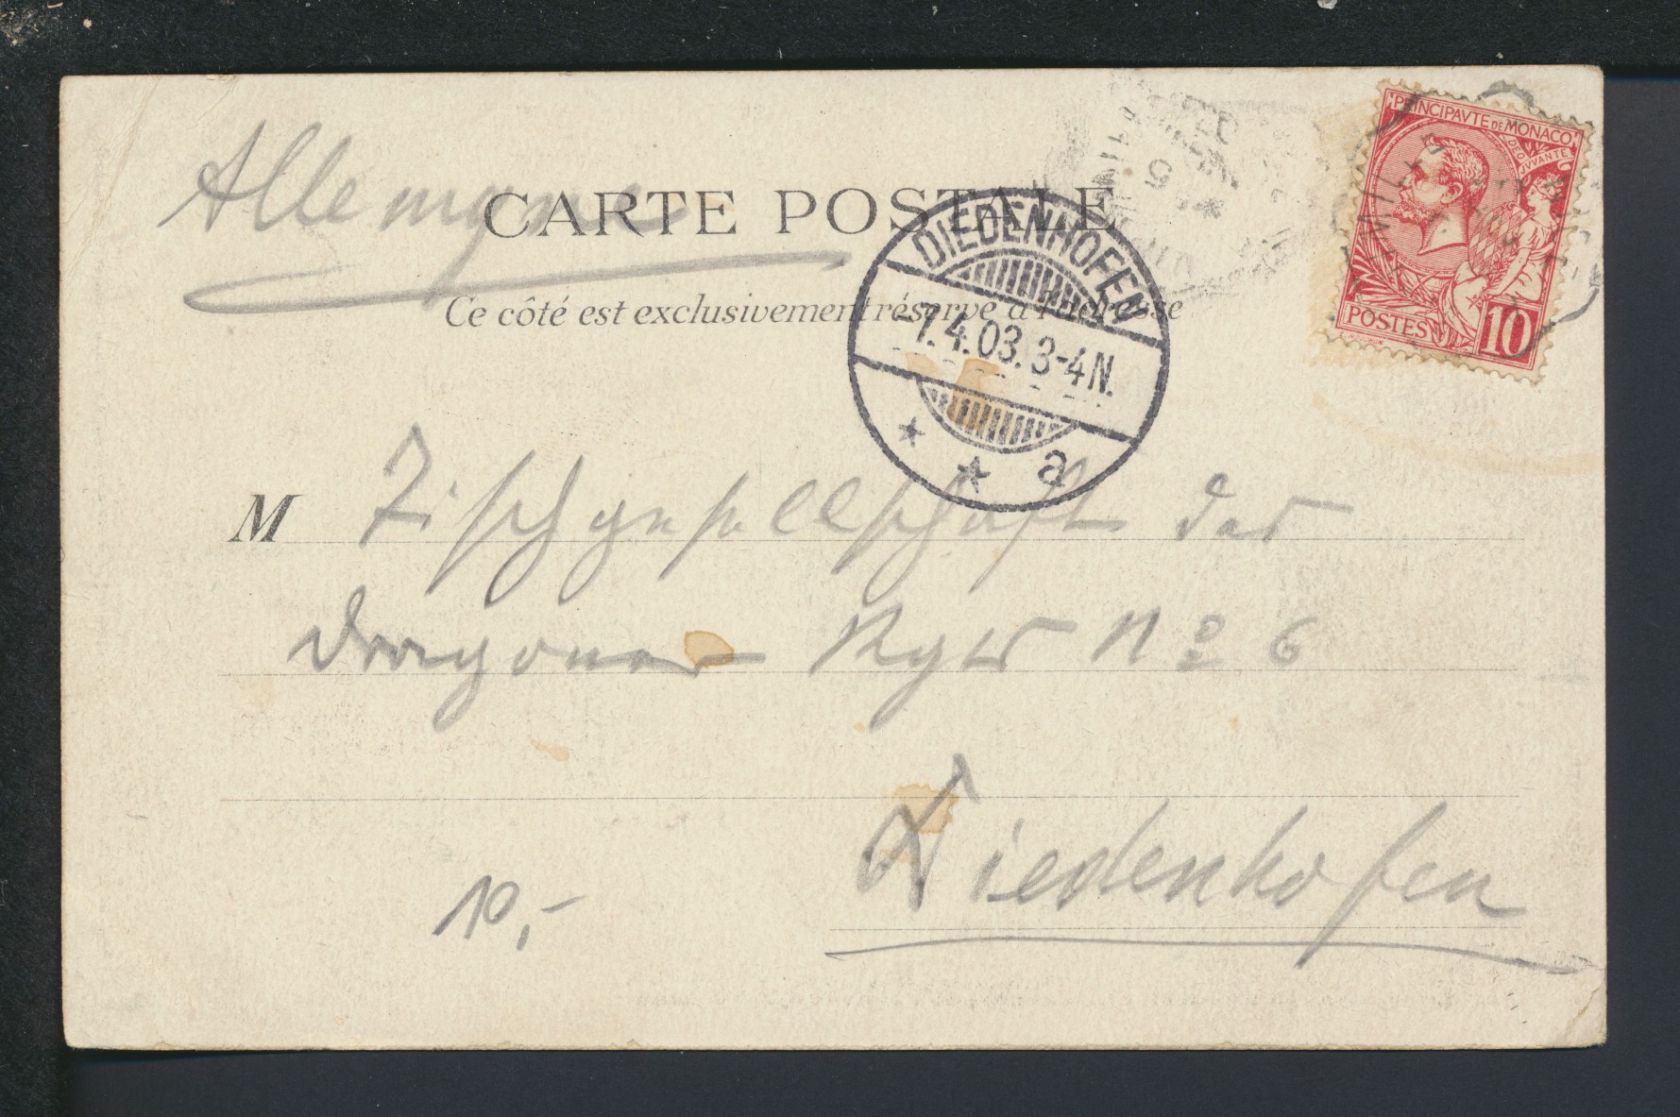 Allemagne
CARTE POSTALE
Ce côté est exclusivement réservé à l'adresse
PRINCIPAVTE DE MONACO
DEO JVVANTE
POSTES 10
DIEDENHOFEN
-7.4.03.3-4N.
* * a
M Tischgesellschaft des
Dragoner Rgts No 6
Diedenhofen
10,-